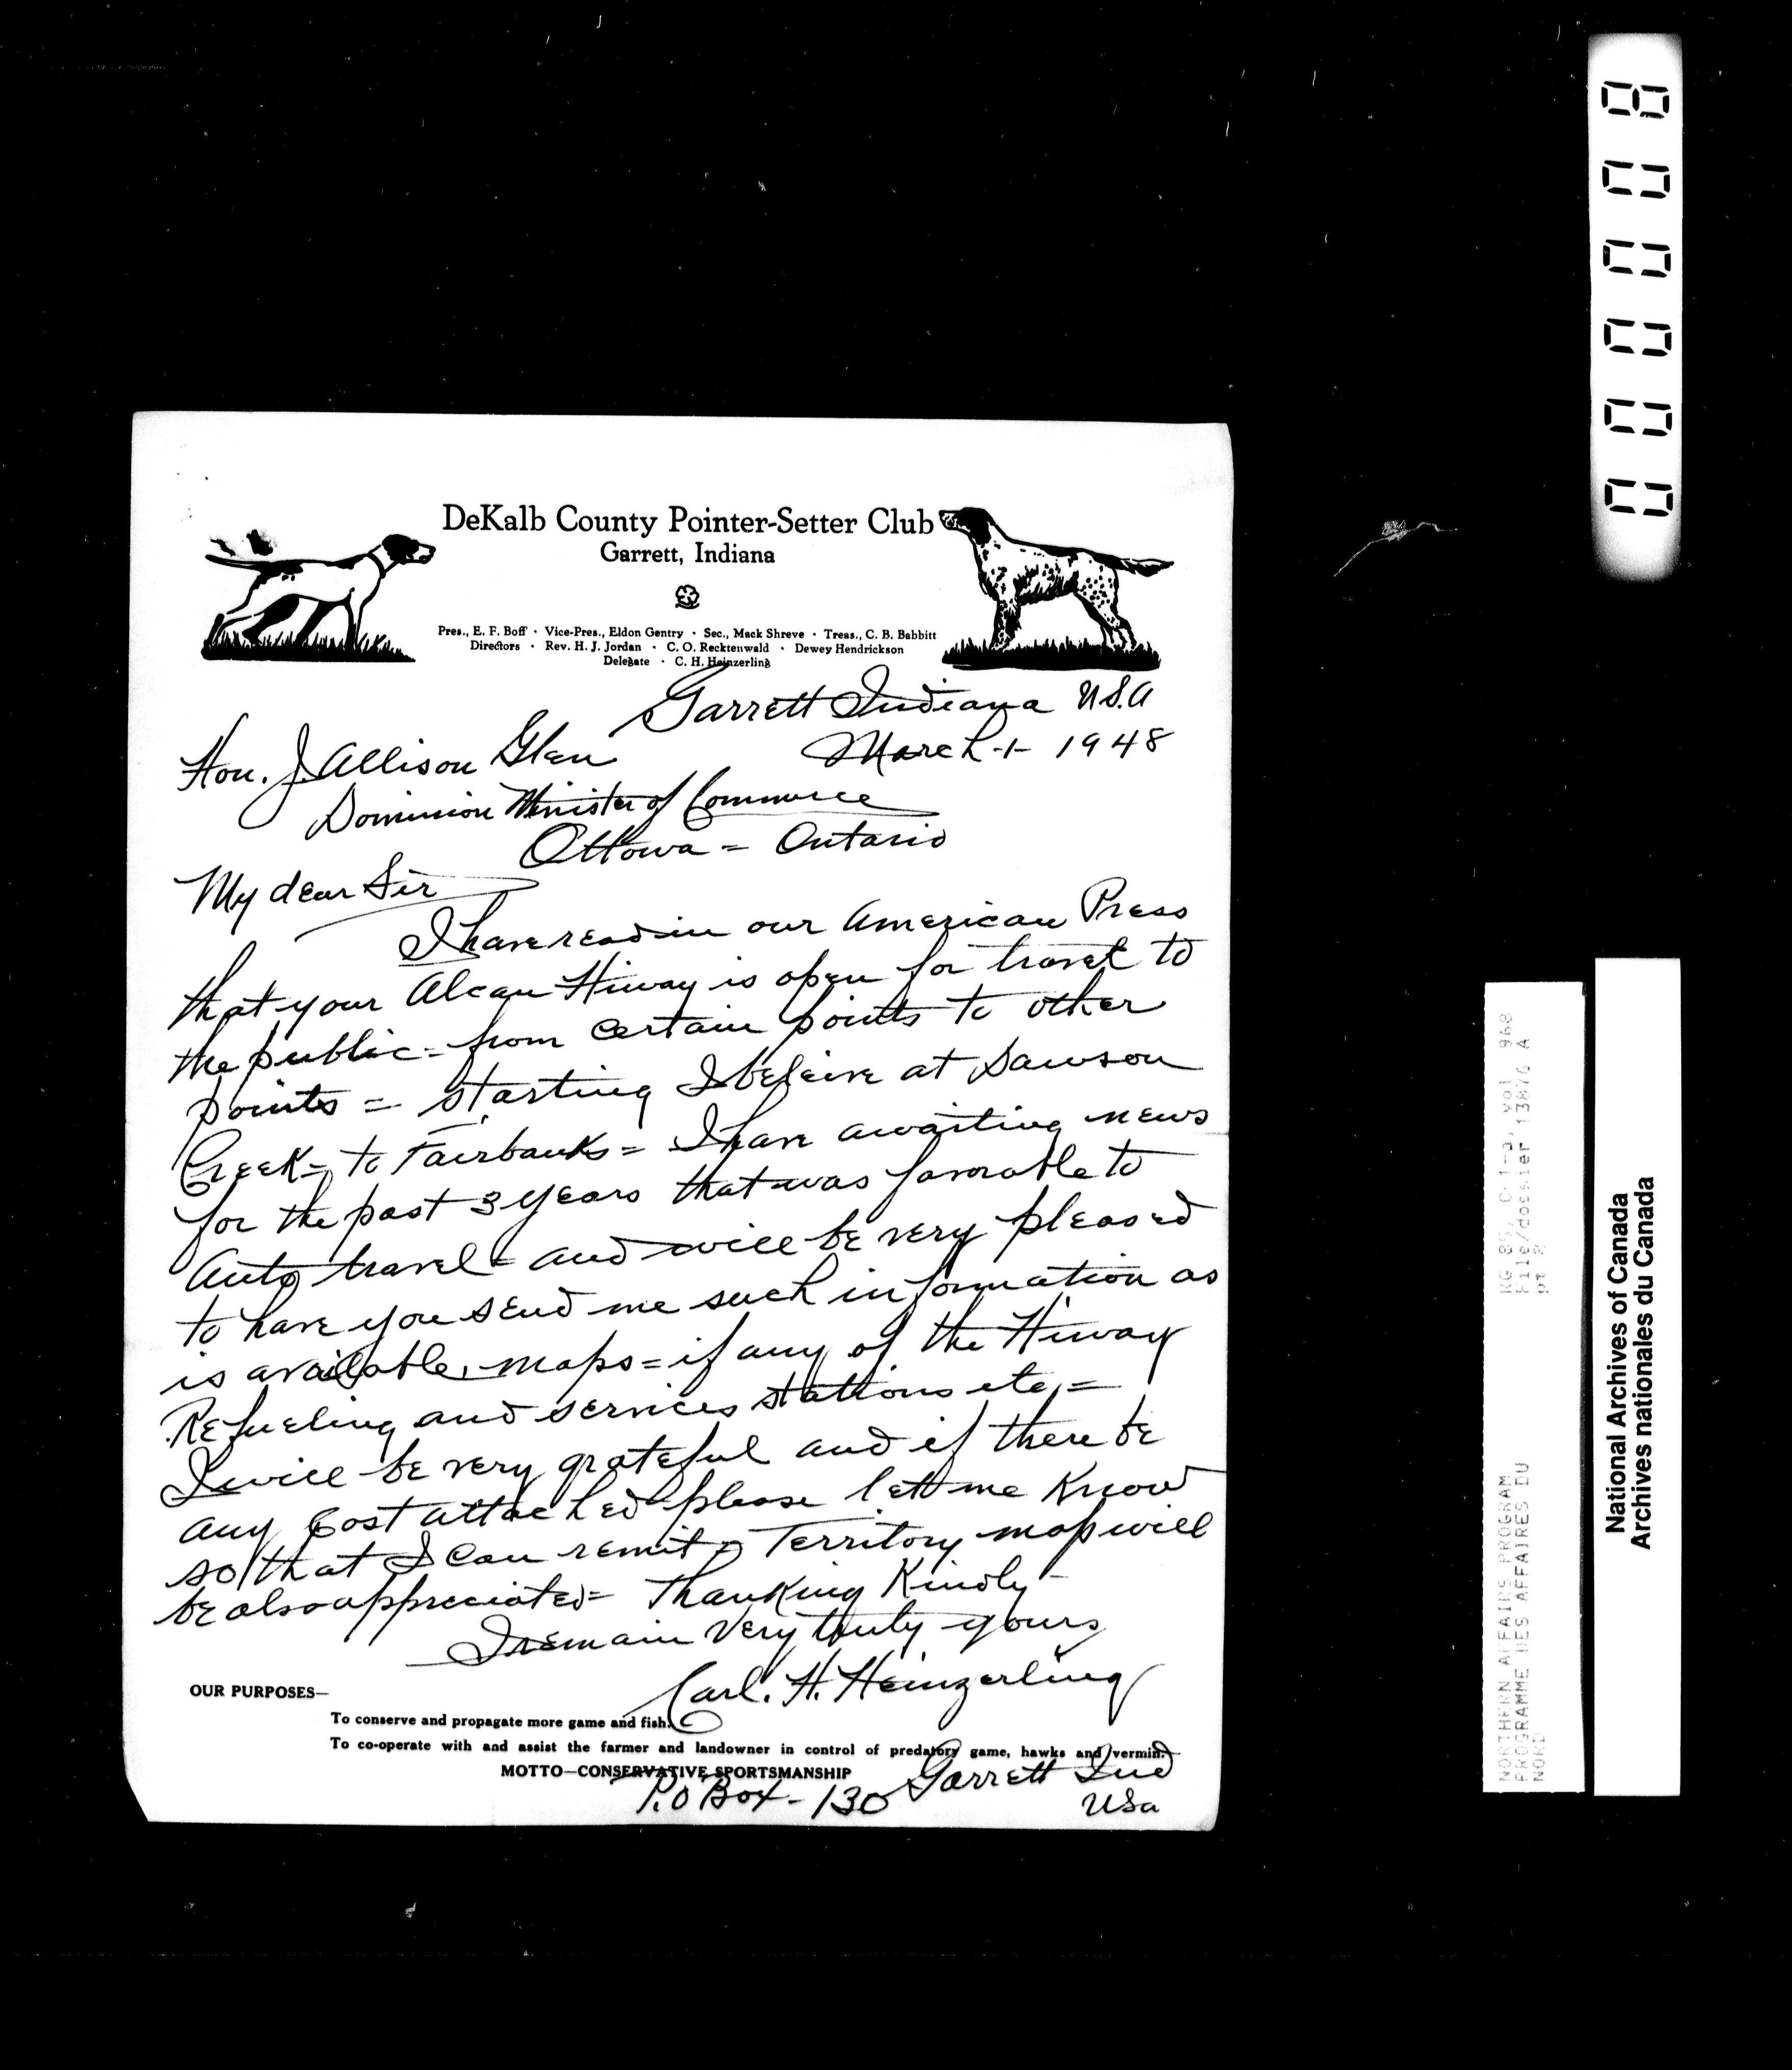 DeKalb County Pointer-Setter Club
Garrett, Indiana
Pres., E. F. Boff · Vice-Pres., Eldon Gentry · Sec., Mack Shreve · Treas., C. B. Babbitt
Directors · Rev. H. J. Jordan · C. O. Recktenwald · Dewey Hendrickson
Delegate · C. H. Heinzerling
Garrett Indiana U.S.A
March -1- 1948
Hon. J. Allison Glen
Dominion Minister of Commerce
Ottowa = Ontario
My dear Sir
I have read in our American Press
that your Alcan Hiway is open for travel to
the public = from certain points to other
points = starting I beleive at Dawson
Creek = to Fairbanks = I have awaiting news
for the past 3 years that was favorable to
Auto travel - and will be very pleased
to have you send me such information as
is available, maps = if any of the Hiway
Refueling and services stations etc, =
I will be very grateful and if there be
any Cost attached please let me Know
so that I Can remit = Territory map will
be also appreciated = Thanking Kindly -
I remain Very truly yours
Carl. H. Heinzerling
OUR PURPOSES—
To conserve and propagate more game and fish.
To co-operate with and assist the farmer and landowner in control of predatory game, hawks and vermin.
MOTTO—CONSERVATIVE SPORTSMANSHIP
P.O Box - 130 Garrett Ind
USa
000008
RG 85, C-1-a, vol 968
File/dossier 13876 A
pt 2
NORTHERN AFFAIRS PROGRAM
PROGRAMME DES AFFAIRES DU
NORD
National Archives of Canada
Archives nationales du Canada